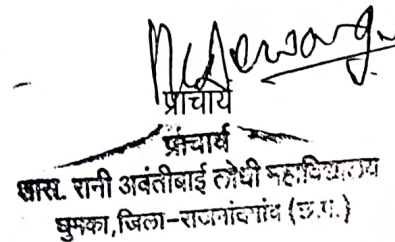 प्राचार्य
प्राचार्य
शास. रानी अवंतीबाई लोधी महाविद्यालय
घुमका, जिला-राजनांदगांव (छ.ग.)